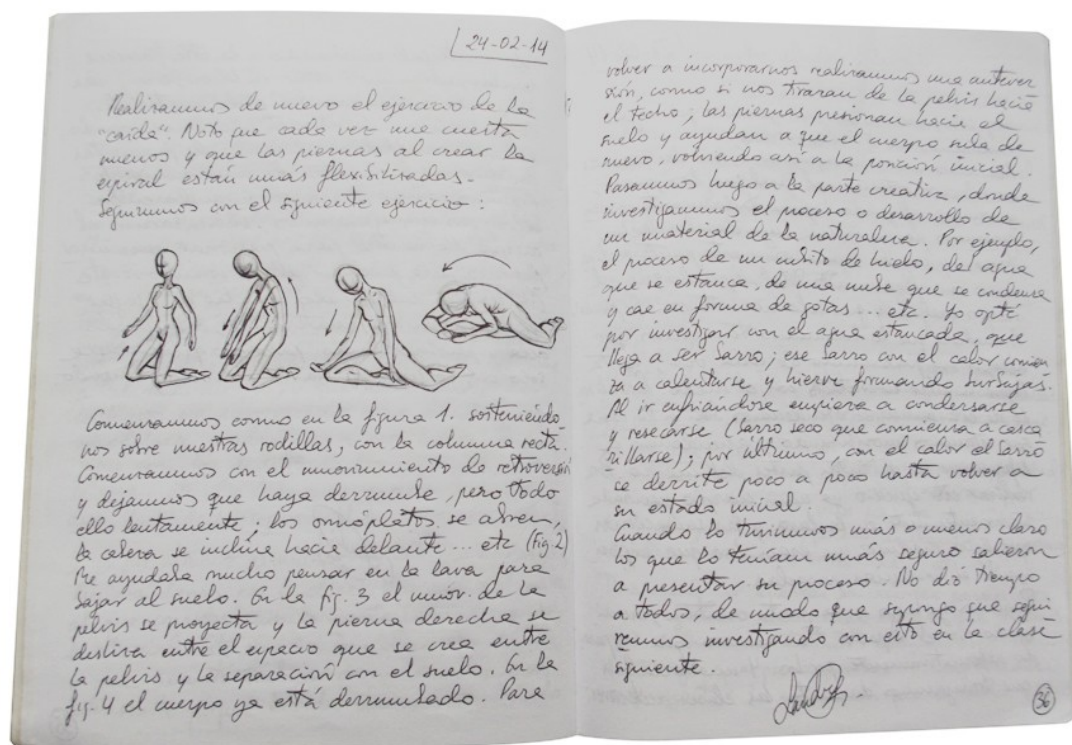 24-02-14
Realizamos de nuevo el ejercicio de la
"caída". Noto que cada vez me cuesta
menos y que las piernas al crear la
espiral están más flexibilizadas.
Seguimos con el siguiente ejercicio:
Comenzamos como en la figura 1. sosteniéndo
nos sobre nuestras rodillas, con la columna recta.
Comenzamos con el movimiento de retroversión
y dejamos que haya derrumbe, pero todo
ello lentamente; los omóplatos se abren,
la cabeza se inclina hacia delante... etc (Fig. 2)
Me ayudaba mucho pensar en la lava para
bajar al suelo. En la fig. 3 el mov. de la
pelvis se proyecta y la pierna derecha se
desliza entre el espacio que se crea entre
la pelvis y la separación con el suelo. En la
fig. 4 el cuerpo ya está derrumbado. Para
volver a incorporarnos realizamos una antever
sión, como si nos tiraran de la pelvis hacia
el techo; las piernas presionan hacia el
suelo y ayudan a que el cuerpo suba de
nuevo, volviendo así a la posición inicial.
Pasamos luego a la parte creativa, donde
investigamos el proceso o desarrollo de
un material de la naturaleza. Por ejemplo,
el proceso de un cubito de hielo, de agua
que se estanca, de una nube que se condensa
y cae en forma de gotas... etc. Yo opté
por investigar con el agua estancada, que
llega a ser barro; ese barro con el calor comien
za a calentarse y hierve formando burbujas.
Al ir enfriándose empieza a condensarse
y resecarse. (barro seco que comienza a casca
rillarse); por último, con el calor el barro
se derrite poco a poco hasta volver a
su estado inicial.
Cuando lo tuvimos más o menos claro
los que lo tenían más seguro salieron
a presentar su proceso. No dió tiempo
a todos, de modo que supongo que segui
remos investigando con esto en la clase
siguiente.
36